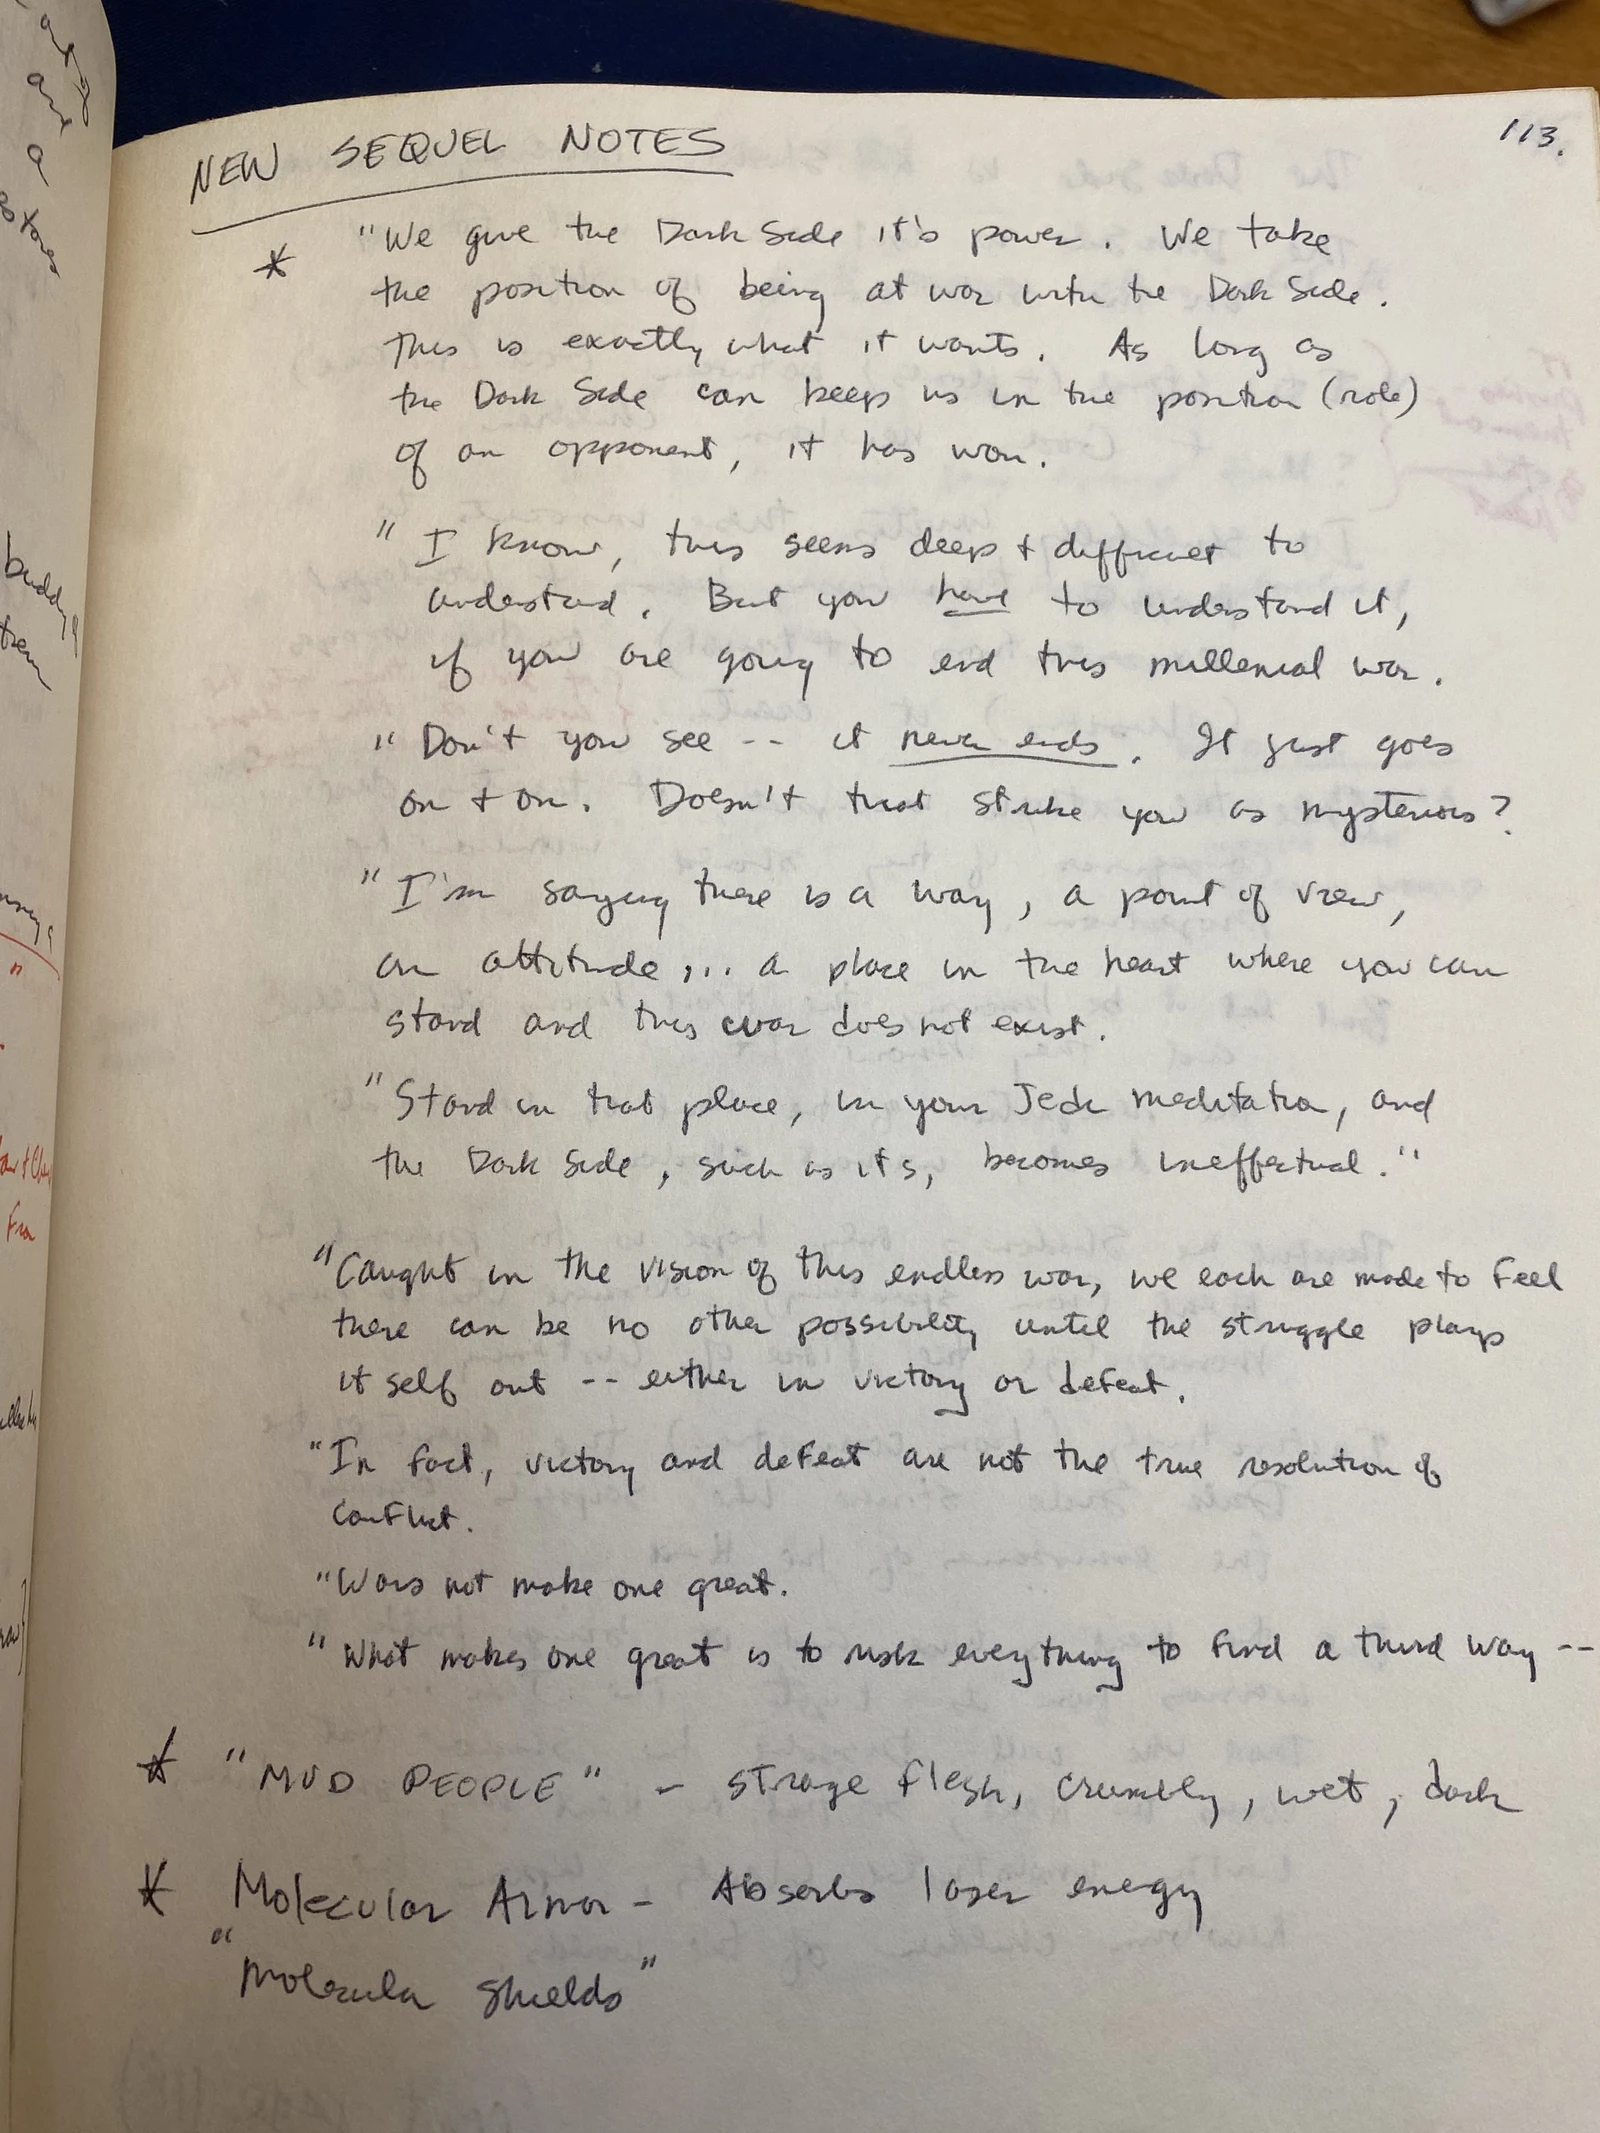 113.
NEW SEQUEL NOTES
* "We give the Dark Side it's power. We take
the position of being at war with the Dark Side.
This is exactly what it wants. As long as
the Dark Side can keep us in the position (role)
of an opponent, it has won.
" I know, this seems deep + difficult to
understand. But you have to understand it,
if you are going to end this millenial war.
" Don't you see -- it never ends. It just goes
on + on. Doesn't that strike you as mysterious?
" I'm saying there is a way, a point of view,
an attitude ,.. a place in the heart where you can
stand and this war does not exist.
" Stand in that place, in your Jedi meditation, and
the Dark Side, such as it is, becomes ineffectual."
"Caught in the vision of this endless war, we each are made to feel
there can be no other possibility until the struggle plays
it self out -- either in victory or defeat.
"In fact, victory and defeat are not the true resolution of
conflict.
"Wars not make one great.
"What makes one great is to risk everything to find a third way --
* "MUD PEOPLE" - strange flesh, crumbly, wet, dark
* Molecular Armor - Absorbs laser energy
"Molecular Shields"
are
a
buddy,
them
From